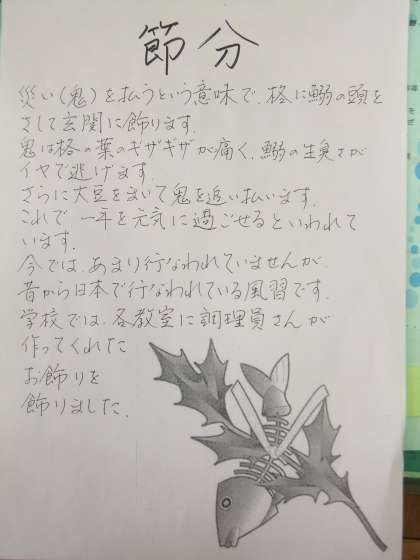 節分
災い(鬼)を払うという意味で、柊に鰯の頭を
さして玄関に飾ります。
鬼は柊の葉のギザギザが痛く、鰯の生臭さが
イヤで逃げます。
さらに大豆をまいて鬼を追い払います。
これで一年を元気に過ごせるといわれて
います。
今では、あまり行なわれていませんが
昔から日本で行なわれている風習です。
学校では、各教室に調理員さんが
作ってくれた
お飾りを
飾りました。